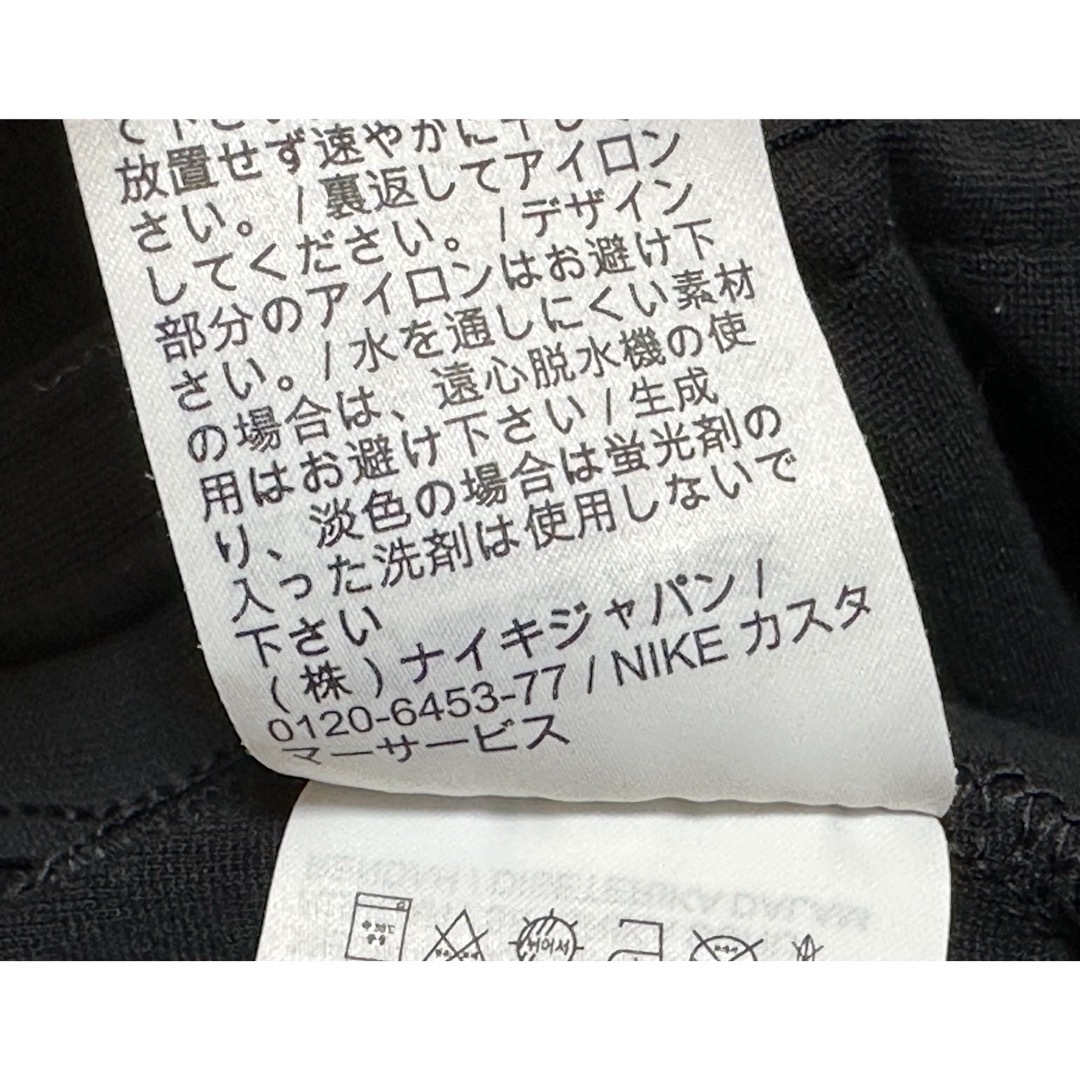 放置せず速やかに干して
さい。/裏返してアイロン
してください。/デザイン
部分のアイロンはお避け下
さい。/水を通しにくい素材
の場合は、遠心脱水機の使
用はお避け下さい/生成
り、淡色の場合は蛍光剤の
入った洗剤は使用しないで
下さい
(株)ナイキジャパン/
0120-6453-77 / NIKE カスタ
マーサービス